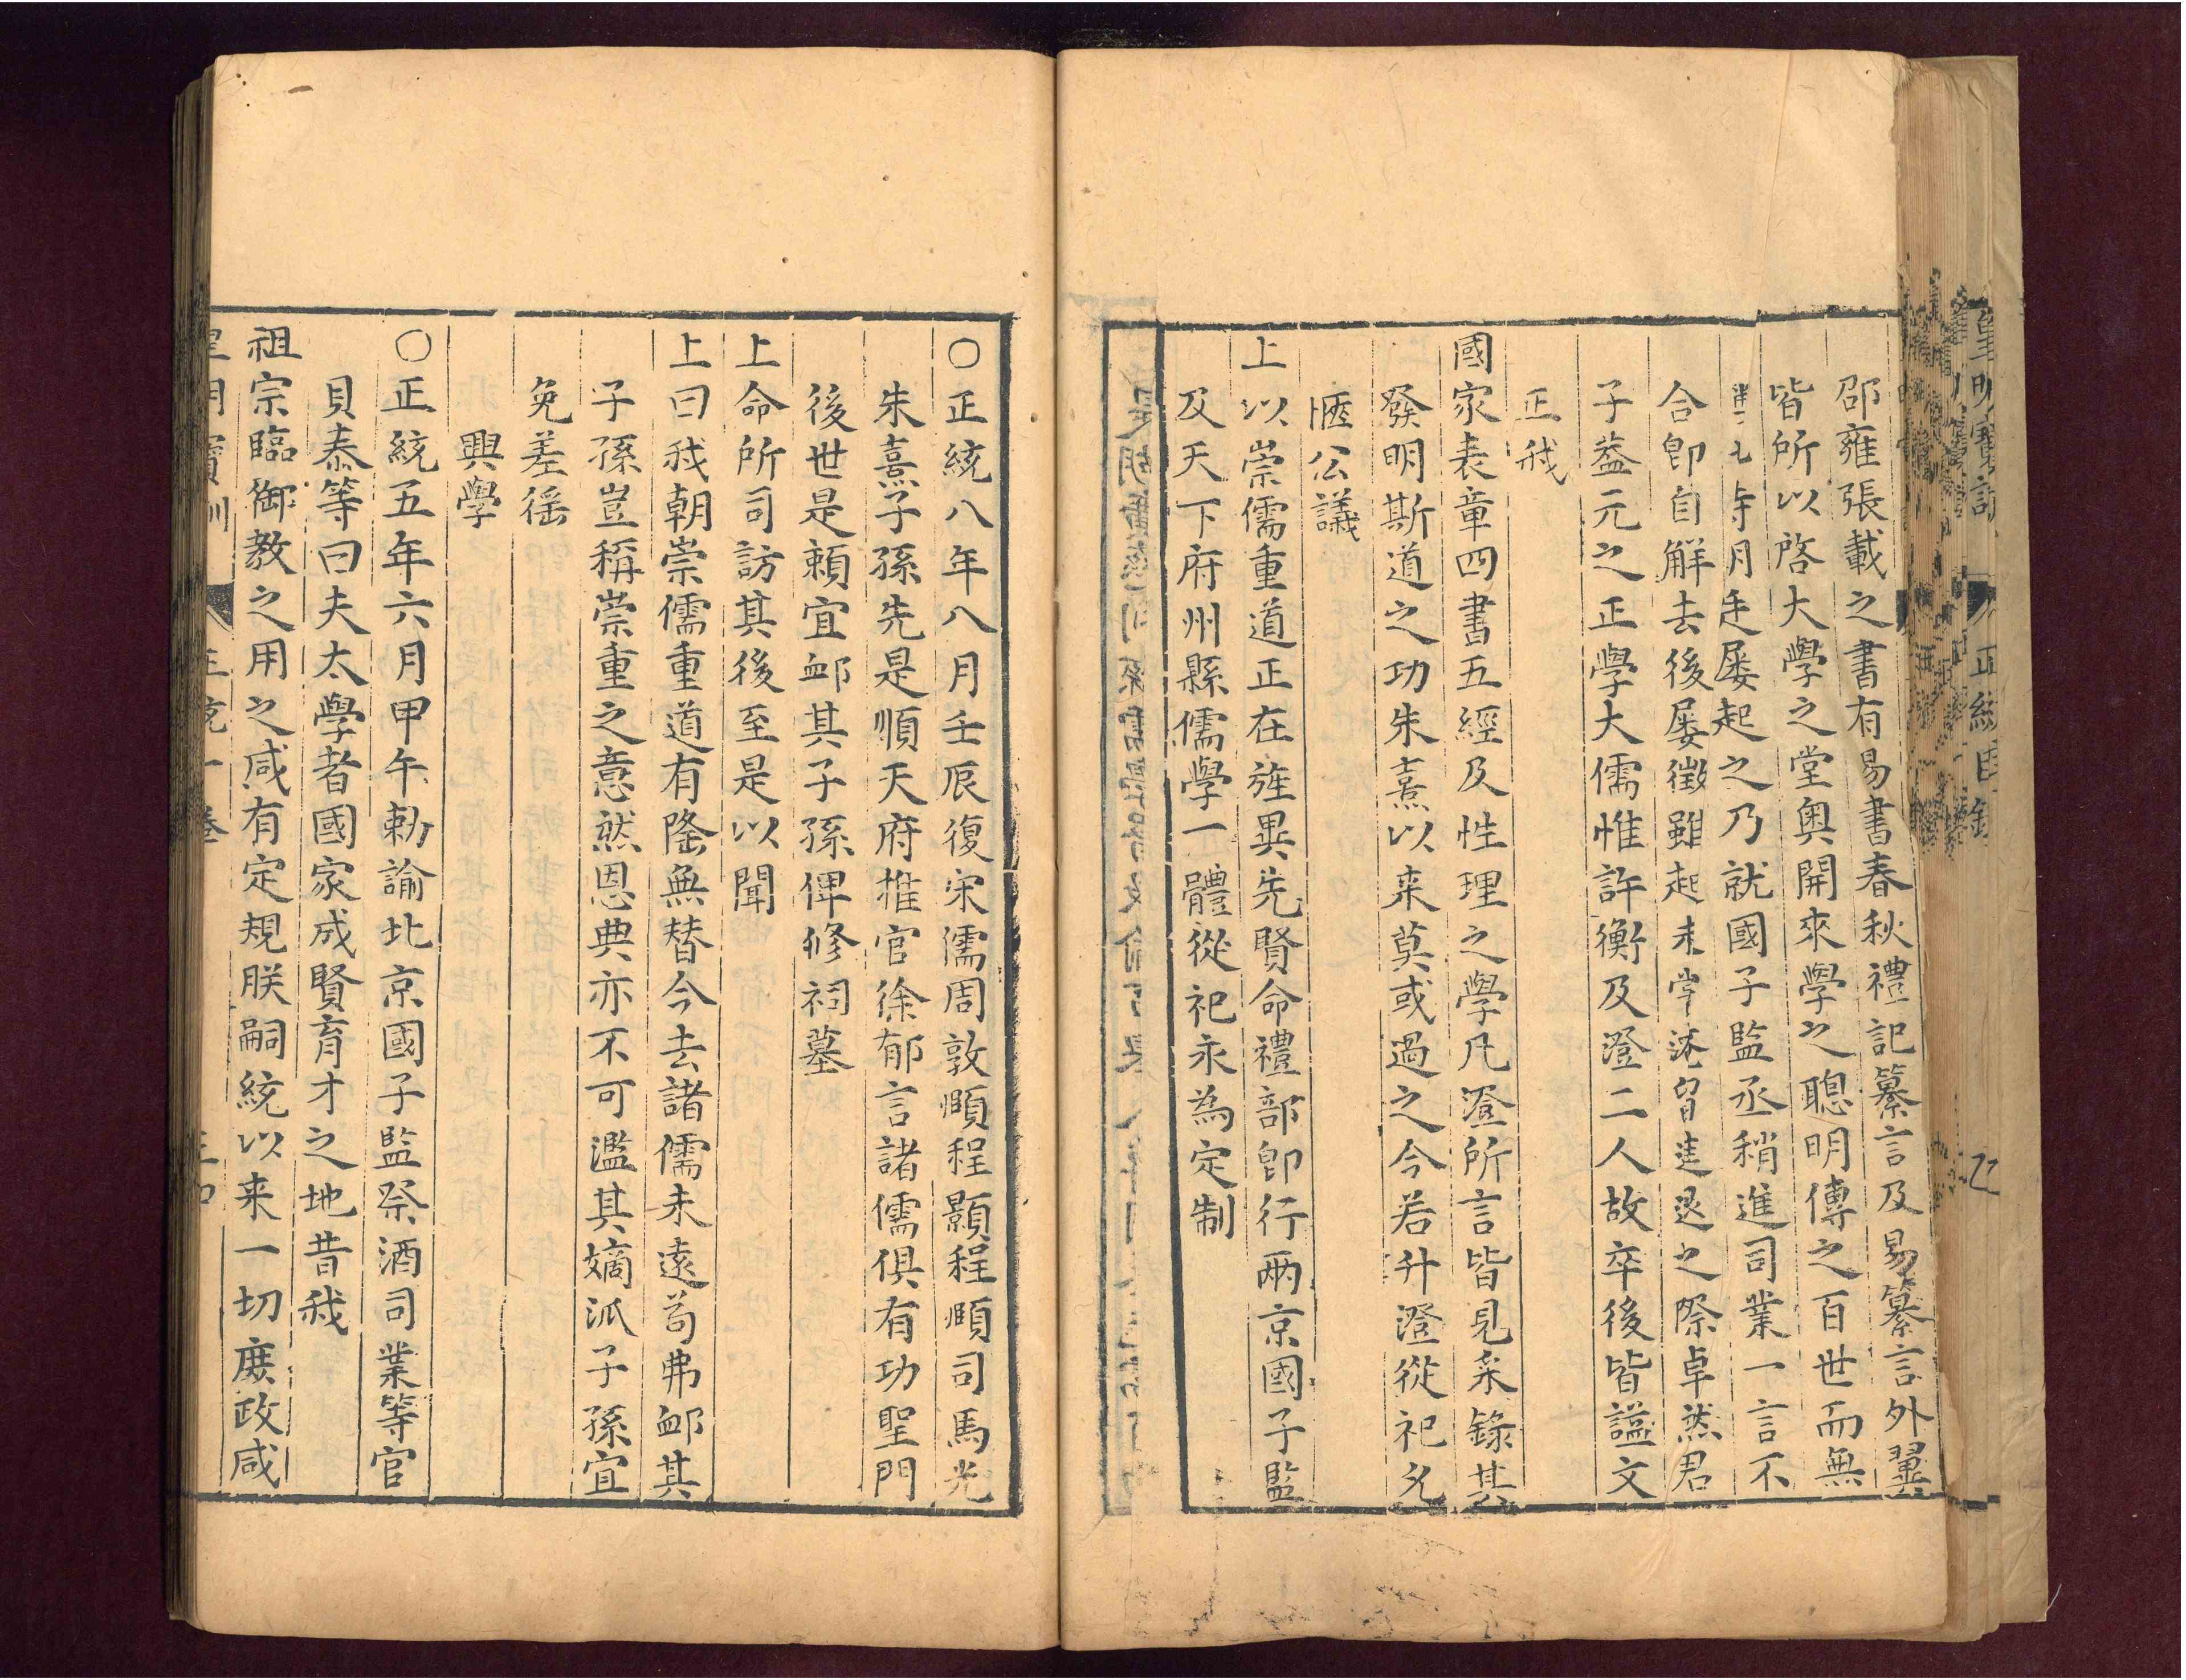 邵雍張載之書有易書春秋禮記纂言及易纂言外翼
皆所以啓大學之堂奧開來學之聰明傳之百世而無
屡起之乃就國子監丞稍進司業一言不
合即自解去後屡徵雖起未常淹留進退之際卓然君
子葢元之正學大儒惟許衡及澄二人故卒後皆謚文
正我
國家表章四書五經及性理之學凡澄所言皆見采錄其
發明斯道之功朱熹以来莫或過之今若升澄從祀允
愜公議
上以崇儒重道正在旌異先賢命禮部卽行兩京國子監
及天下府州縣儒學一體從祀永為定制
○正統八年八月壬辰復宋儒周敦頤程顥程頤司馬光
朱熹子孫先是順天府推官徐郁言諸儒俱有功聖門
後世是賴宜䘏其子孫俾修祠墓
上命所司訪其後至是以聞
上曰我朝崇儒重道有隆無替今去諸儒未遠苟弗䘏其
子孫豈稱崇重之意然恩典亦不可濫其嫡派子孫宜
免差徭
興學
○正統五年六月甲午勅諭北京國子監祭酒司業等官
貝泰等曰夫太學者國家成賢育才之地昔我
祖宗臨御教之用之咸有定規朕嗣統以来一切庶政咸